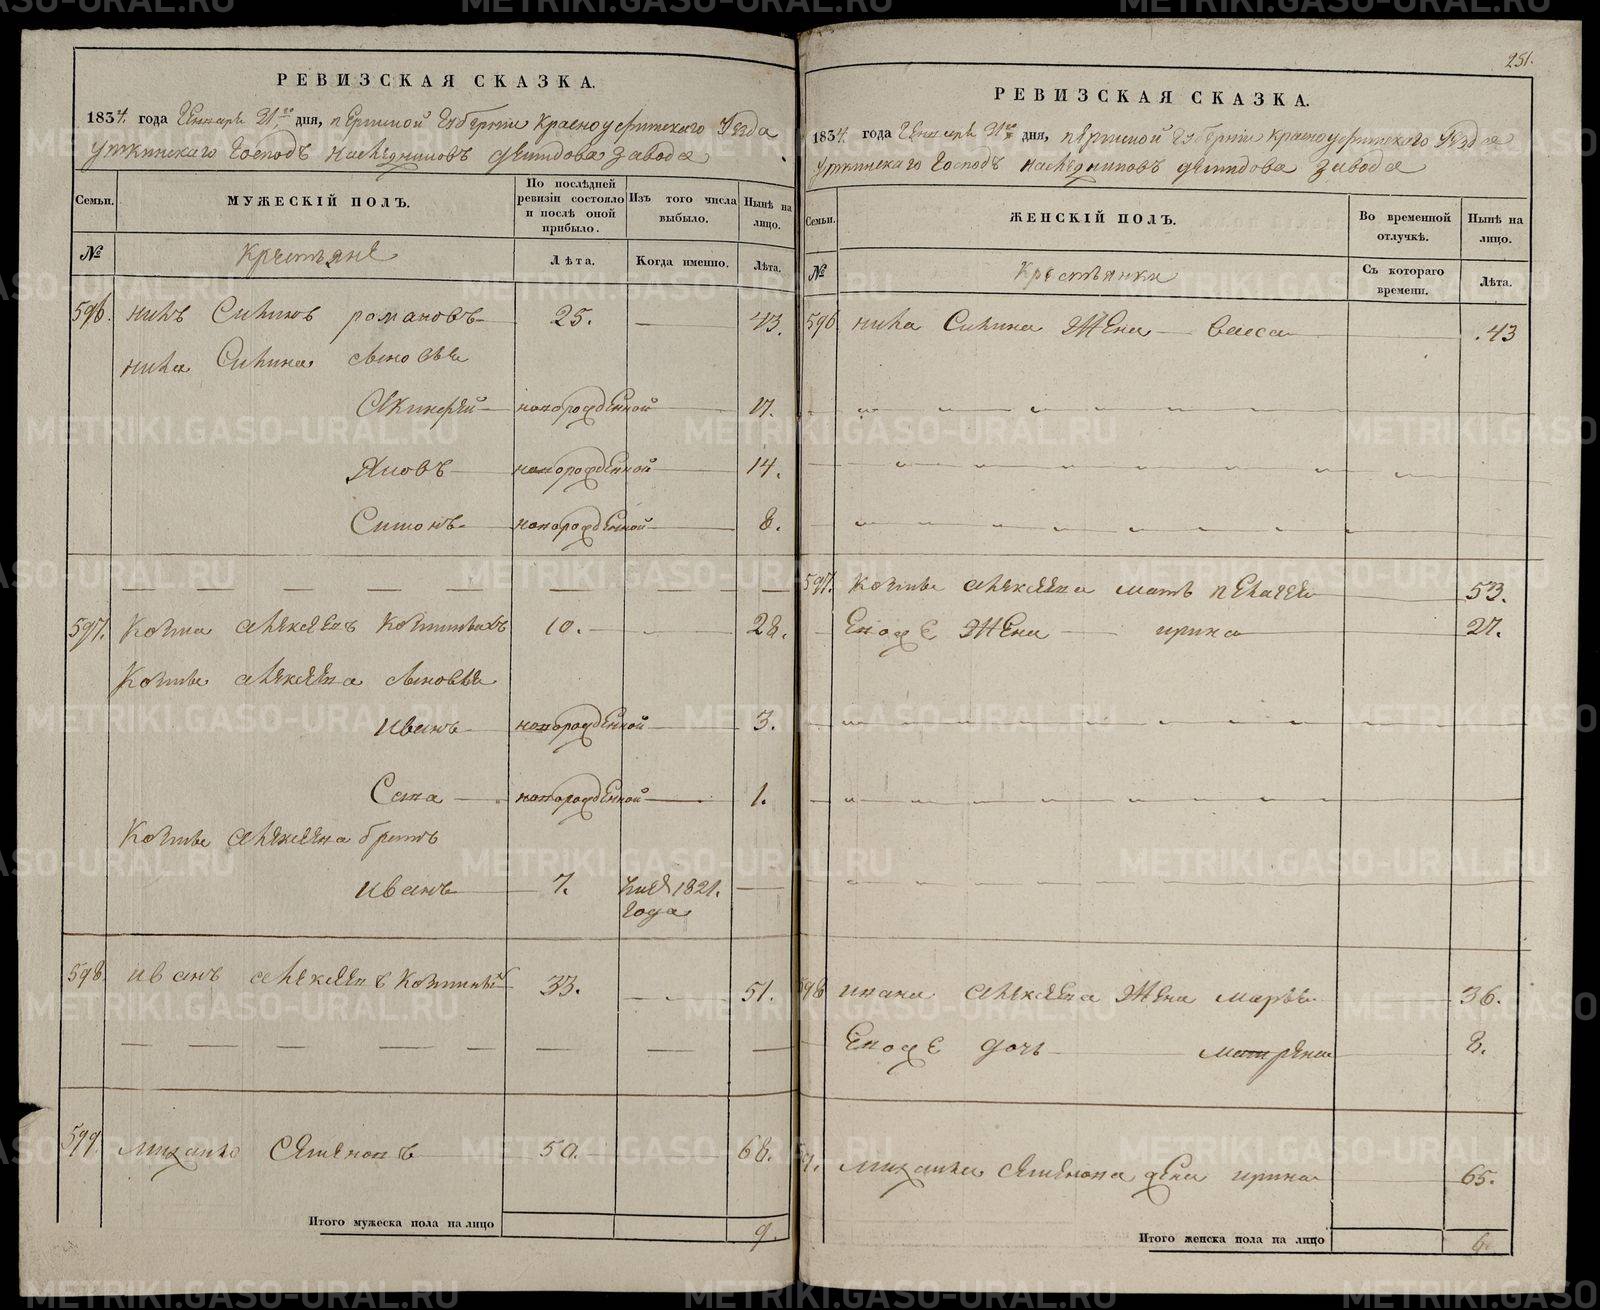 РЕВИЗСКАЯ СКАЗКА.
1834. года Генваря 21го дня, Пермской Губернии Красноуфимского Уезда
Уткинского Господъ Наследниковъ Демидова завода
Семьи.
МУЖЕСКІЙ ПОЛЪ.
По послѣдней ревизіи состояло и послѣ оной прибыло.
Изъ того числа выбыло.
Нынѣ на лицо.
№
Крестьяне
Лѣта.
Когда именно.
Лѣта.
596. Романовъ 25. 43.
Акинфей новорожденной 17.
Яковъ новорожденной 14.
Симонъ новорожденной 8.
597. Козма Алексеевъ 10. 28.
Козмы Алексеева сыновья
Иванъ новорожденной 3.
Сава новорожденной 1.
Козмы Алексеева братъ
Иванъ 7. 1821. года
598. Иванъ Алексеевъ 33. 51.
599. Михайло Семеновъ 50. 68.
Итого мужеска пола на лицо 9.
251.
РЕВИЗСКАЯ СКАЗКА.
1834 года Генваря 21го дня, Пермской Губернии Красноуфимского Уезда
Уткинского Господъ Наследниковъ Демидова Завода
Семьи.
ЖЕНСКІЙ ПОЛЪ.
Во временной отлучкѣ.
Нынѣ на лицо.
№
Крестьянки
Съ котораго времени.
Лѣта.
596 Жена Васса 43
597. Козмы Алексеева мать Пелагея 53.
Его же Жена Ирина 27.
598 Ивана Алексеева Жена Марья 36.
Его же дочь Матрена 8.
9. Михайла Семенова жена Ирина 65.
Итого женска пола на лицо 6
METRIKI.GASO-URAL.RU